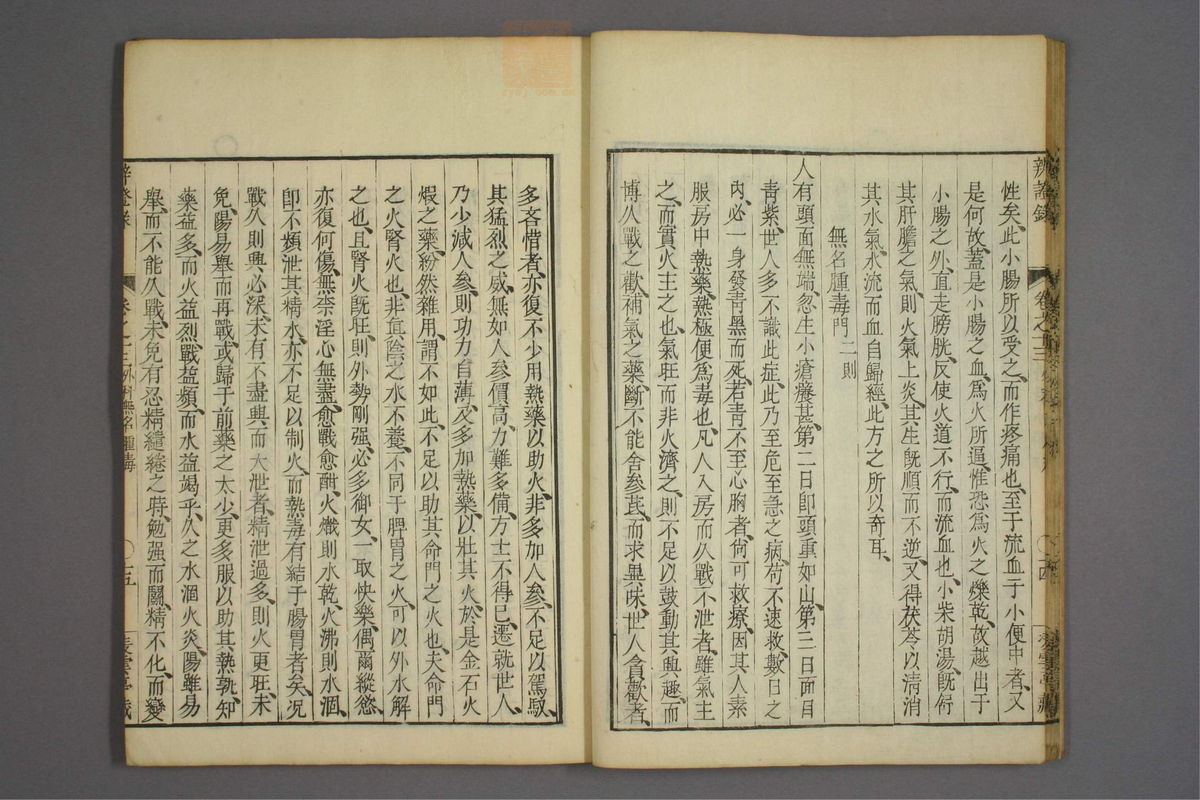 辨證錄
卷之十三
性矣、此小腸所以受之、而作疼痛也、至于流血于小便中者、又
是何故、蓋是小腸之血、爲火所逼、惟恐爲火之爍乾、故越出于
小腸之外、直走膀胱、反使火道不行、而流血也、小柴胡湯、旣衍
其肝膽之氣、則火氣上炎、其生旣順而不逆、又得茯苓以清消
其水氣、水流而血自歸經、此方之所以奇耳、
無名腫毒門 二則
人有頭面無端忽生小瘡、癢甚、第二日卽頭重如山、第三日面目
青紫、世人多不識此症、此乃至危至急之病、苟不速救、數日之
內、必一身發青黑而死、若青不至心胸者、尙可救療、因其人素
服房中熱藥、熱極便爲毒也、凡人入房而久戰不泄者、雖氣主
之、而實火主之也、氣旺而非火濟之、則不足以鼓動其興趣、而
博久戰之歡、補氣之藥、斷不能舍參芪、而求異味、世人貪歡者、
多吝惜者亦復不少、用熱藥以助火、非多加人參、不足以駕馭
其猛烈之威、無如人參價高、力難多備、方士不得已、遷就世人、
乃少減人參、則功力自薄、及多加熱藥、以壯其火、於是金石火
煆之藥、紛然雜用、謂不如此、不足以助其命門之火也、夫命門
之火、腎火也、非眞陰之水不養、不同于脾胃之火、可以外水解
之也、且腎火旣旺、則外勢剛强、必多御女、一取快樂、偶爾縱慾、
亦復何傷、無柰淫心無盡、愈戰愈酣、火熾則水乾、火沸則水涸、
卽不頻泄其精水、亦不足以制火、而熱毒有結于腸胃者矣、况
戰久則興必深、未有不盡興而大泄者、精泄過多、則火更旺、未
免陽易舉而再戰、或歸于前藥之太少、更多服以助其熱、孰知
藥益多、而火益烈、戰益頻、而水益竭乎、久之水涸火炎、陽雖易
舉、而不能久戰、未免有忍精繾綣之時、勉强而鬭、精不化、而變
卷之十三 外科無名腫毒